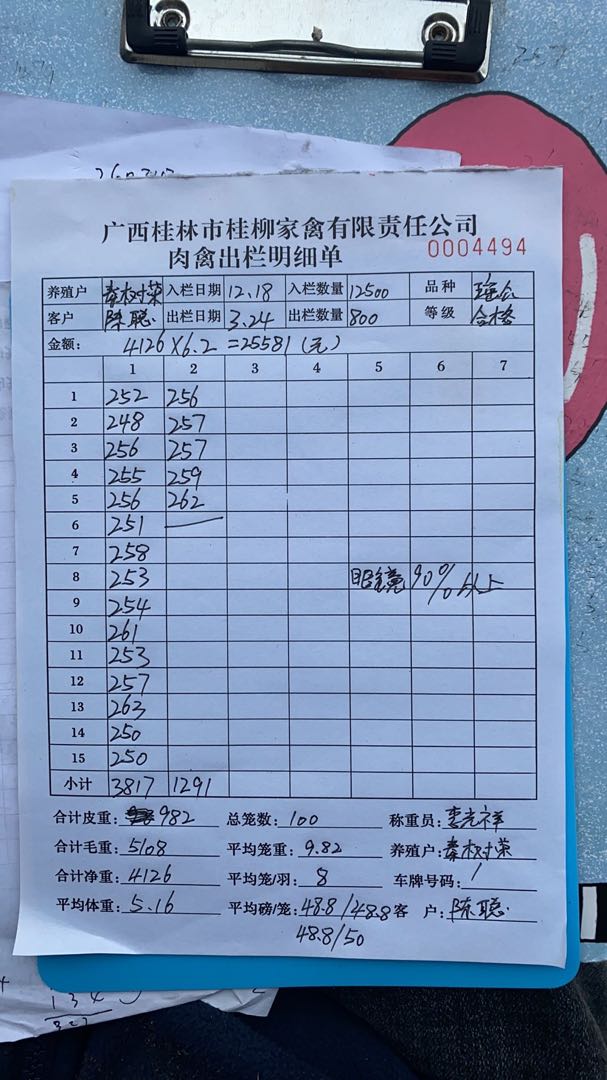 广西桂林市桂柳家禽有限责任公司
肉禽出栏明细单 0004494
养殖户 秦树荣 入栏日期 12.18 入栏数量 12500 品种
客户 陈聪 出栏日期 3.24 出栏数量 800 等级 合格
金额: 4126×6.2=25581(元)
1 2 3 4 5 6 7
1 252 256
2 248 257
3 256 257
4 255 259
5 256 262
6 251 —
7 258
8 253 眼镜90%以上
9 254
10 261
11 253
12 257
13 263
14 250
15 250
小计 3817 1291
合计皮重: 982 总笼数: 100 称重员: 李光祥
合计毛重: 5108 平均笼重: 9.82 养殖户: 秦树荣
合计净重: 4126 平均笼/羽: 8 车牌号码: /
平均体重: 5.16 平均磅/笼: 48.8/48.8 客户: 陈聪
48.8/50